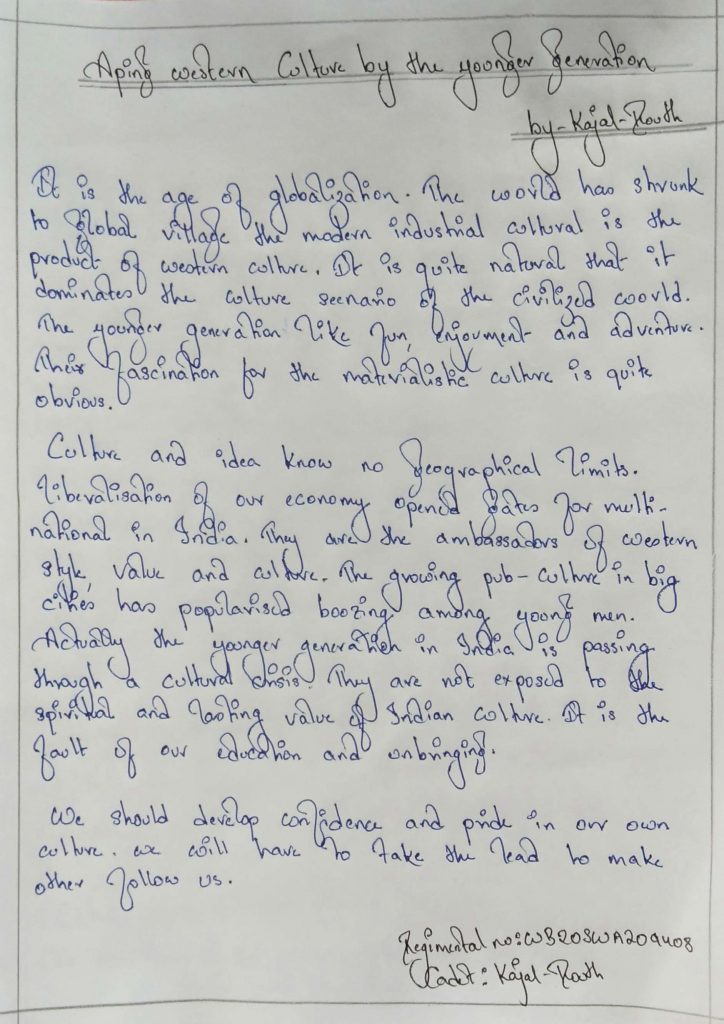 Aping western Culture by the younger generation
by-Kajal-Routh
It is the age of globalization. The world has shrunk
to Global village the modern industrial cultural is the
product of western culture. It is quite natural that it
dominates the culture scenario of the civilized world.
The younger generation like fun, enjoument and adventure.
Their fascination for the materialistic culture is quite
obvious.
Culture and idea know no geographical limits.
liberalisation of our economy opened gates for multi-
national in India. They are the ambassadors of western
style, value and culture. The growing pub-culture in big
cities has popularised boozing among young men.
Actually the younger generation in India is passing
through a cultural crisis. They are not exposed to the
spiritual and lasting value of Indian culture. It is the
fault of our education and unbringing.
We should develop confidence and pride in our own
culture. we will have to take the lead to make
other follow us.
Regimental no:
Cadet: Kajal-Routh